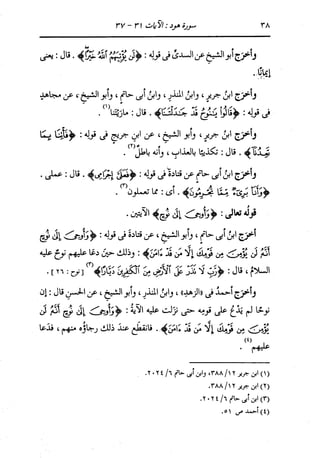 ٣٨ سورة هود : الآيات ٣١ - ٣٧
وأخرَج أبو الشيخِ عن السديِّ فى قولِه : ﴿لَن يُؤْتِيَهُمُ ٱللَّهُ خَيْرًا﴾ . قال : يعنى
إيمانًا .
وأخرَج ابنُ جريرٍ ، وابنُ المنذرِ ، وابنُ أبى حاتمٍ ، وأبو الشيخِ ، عن مجاهدٍ
فى قولِه : ﴿قَالُوا۟ يَـٰنُوحُ قَدْ جَـٰدَلْتَنَا﴾ . قال : مارَيْتَنا(١) .
وأخرَج ابنُ جريرٍ ، وأبو الشيخِ ، عن ابنِ جريجٍ فى قولِه : ﴿فَأْتِنَا بِمَا
تَعِدُنَآ﴾ . قال : تكذيبًا بالعذابِ ، وأنه باطلٌ(٢) .
وأخرَج ابنُ أبى حاتمٍ عن قتادةَ فى قولِه : ﴿فَعَلَىَّ إِجْرَامِى﴾ . قال : عملى .
﴿وَأَنَا۠ بَرِىٓءٌ مِّمَّا تُجْرِمُونَ﴾ . أى : مما تعملون(٣) .
قولُه تعالى : ﴿وَأُوحِىَ إِلَىٰ نُوحٍ﴾ الآيتين .
أخرَج ابنُ أبى حاتمٍ ، وأبو الشيخِ ، عن قتادةَ فى قولِه : ﴿وَأُوحِىَ إِلَىٰ نُوحٍ
أَنَّهُۥ لَن يُؤْمِنَ مِن قَوْمِكَ إِلَّا مَن قَدْ ءَامَنَ﴾ : وذلك حينَ دعَا عليهم نوحٌ عليه
السلامُ ، قال : ﴿رَّبِّ لَا تَذَرْ عَلَى ٱلْأَرْضِ مِنَ ٱلْكَـٰفِرِينَ دَيَّارًا﴾(٣) [نوح : ٢٦] .
وأخرَج أحمدُ فى «الزهدِ» ، وابنُ المنذرِ ، وأبو الشيخِ ، عن الحسنِ قال : إن
نوحًا لم يَدْعُ على قومِه حتى نزَلت عليه الآيةُ : ﴿وَأُوحِىَ إِلَىٰ نُوحٍ أَنَّهُۥ لَن
يُؤْمِنَ مِن قَوْمِكَ إِلَّا مَن قَدْ ءَامَنَ﴾ . فانقطَع عندَ ذلك رجاؤُه منهم ، فدعَا
عليهم(٤) .
(١) ابن جرير ١٢/ ٣٨٨، وابن أبى حاتم ٦/ ٢٠٢٤.
(٢) ابن جرير ١٢/ ٣٨٨.
(٣) ابن أبى حاتم ٦/ ٢٠٢٤.
(٤) أحمد ص ٥١.